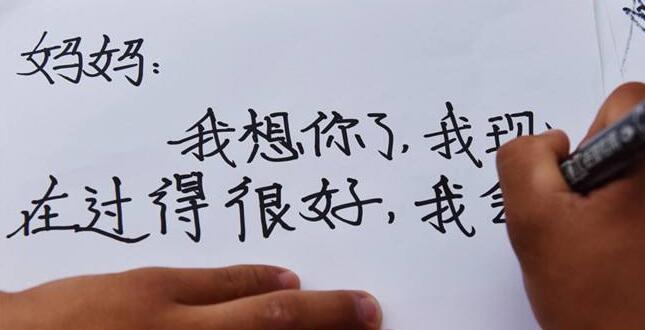 妈妈：
我想你了，我现
在过得很好，我会